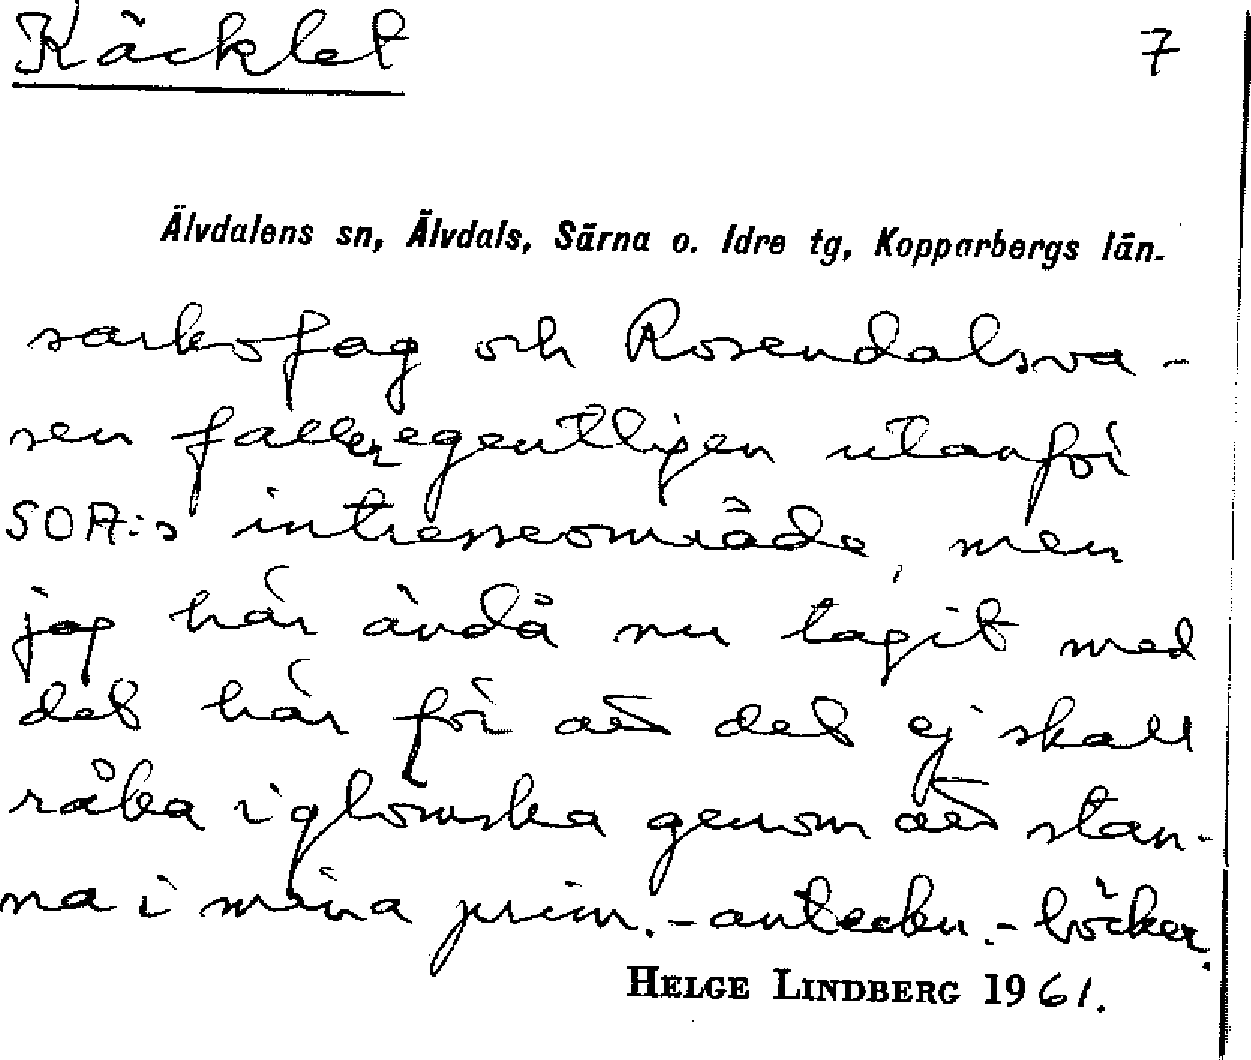 Käcklet 7
Älvdalens sn, Älvdals, Särna o. Idre tg, Kopparbergs län.
sarkofag och Rosendalsva-
sen faller egentligen utanför
SOA:s intresseområde, men
jag har ändå nu tagit med
det här för att det ej skall
råka i glömska genom att stan-
na i mina prim.-anteckn.-böcker.
HELGE LINDBERG 1961.